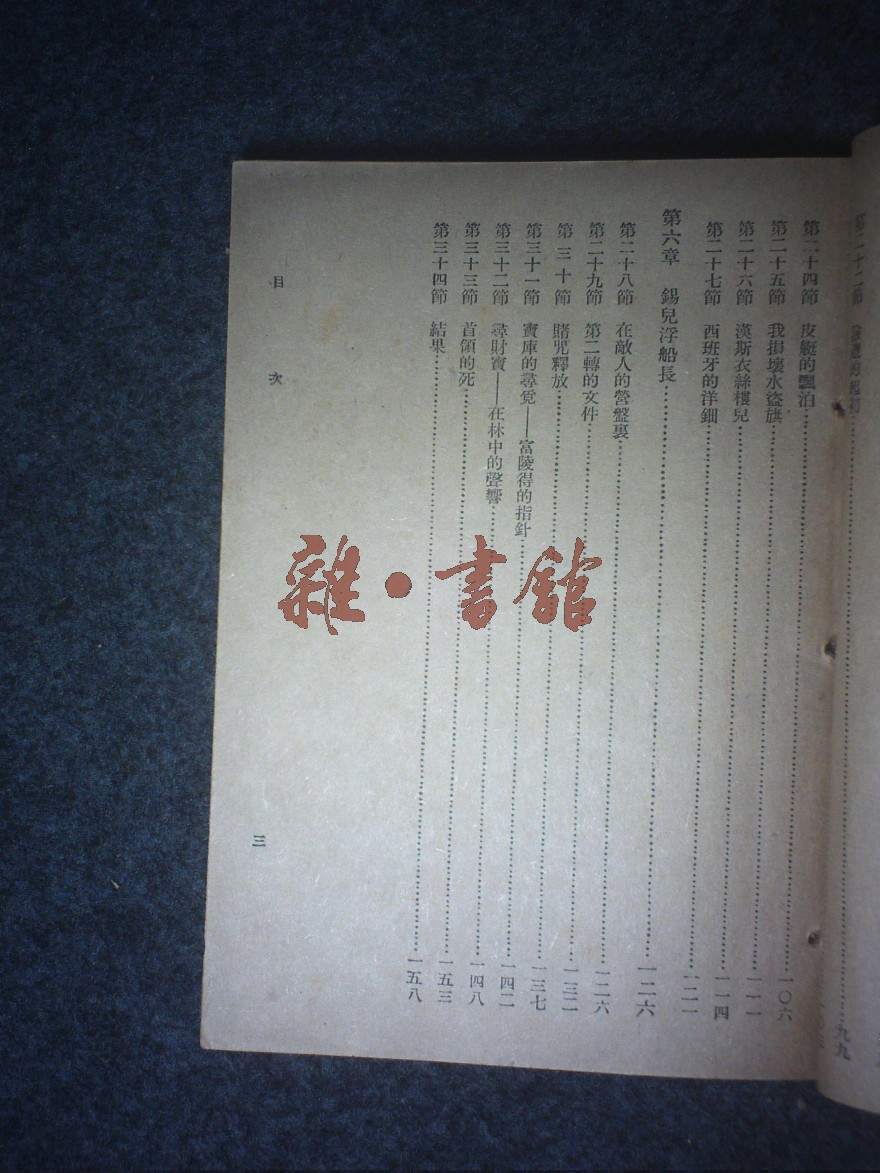 九九
第二十四節 皮艇的飄泊……一〇六
第二十五節 我損壞水盜旗……一一一
第二十六節 漢斯衣絲樓兒……一一四
第二十七節 西班牙的洋鈿……一二一
第六章 錫兒浮船長……一二六
第二十八節 在敵人的營盤裏……一二六
第二十九節 第二轉的文件……一三二
第三十節 賭咒釋放……一三七
第三十一節 寶庫的尋覓——富陵得的指針……一四二
第三十二節 尋財寶——在林中的聲響……一四八
第三十三節 首領的死……一五三
第三十四節 結果……一五八
目次
三
雜·書館